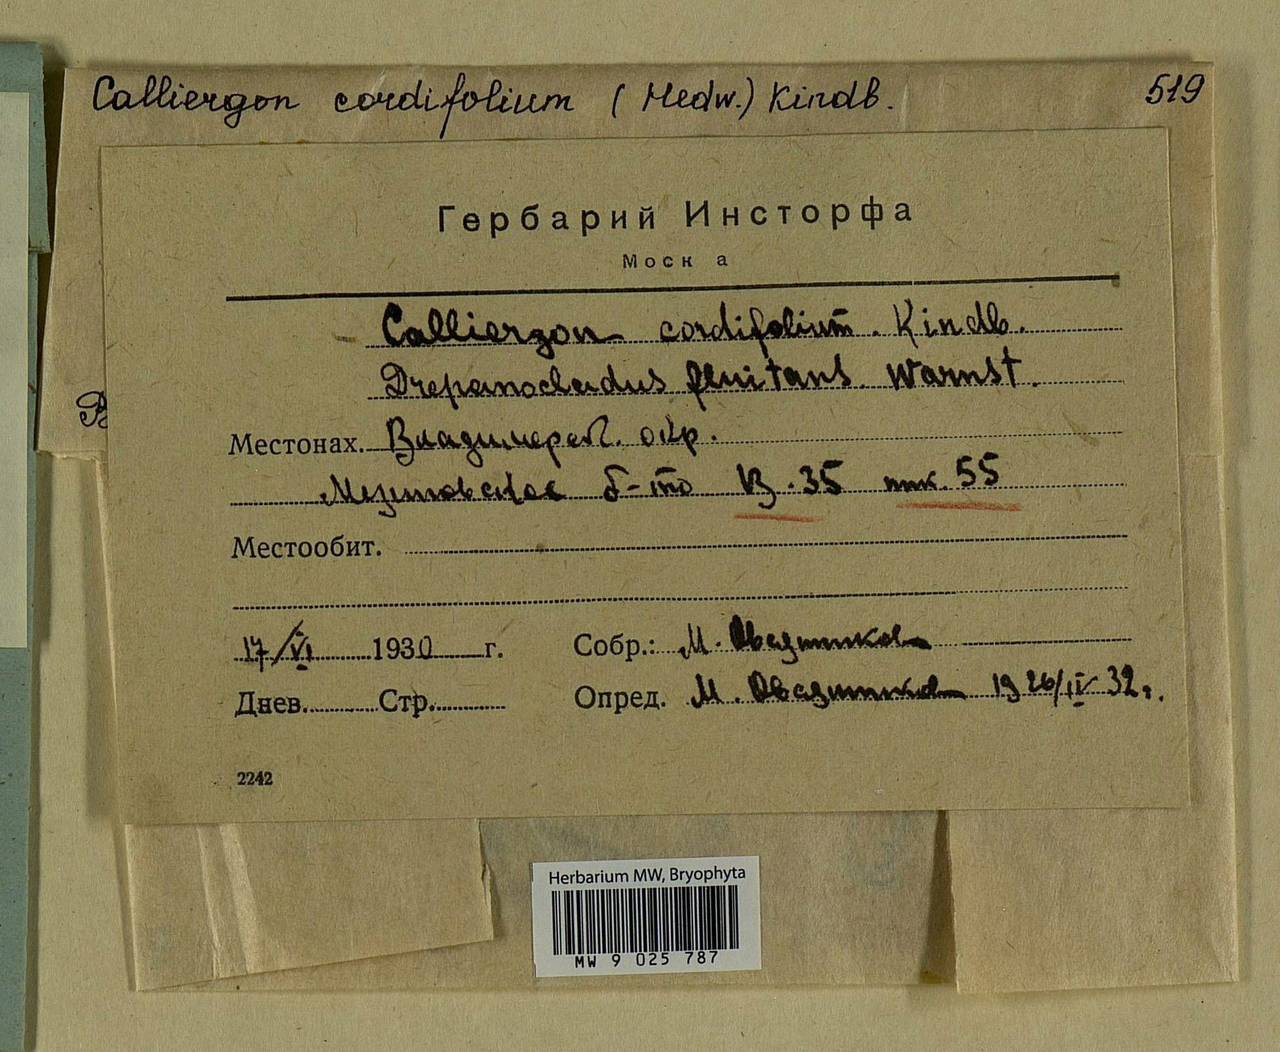 Calliergon cordifolium (Hedw.) Kindb. 519
Гербарий Инсторфа
Моск а
Calliergon cordifolium. Kindb.
Drepanocladus fluitans. Warnst.
Местонах. Владимирск. окр.
Мезиновское б-то В.35 пик. 55
Местообит.
17/VI 1930 г. Собр.: М.
Днев. Стр. Опред. М. 1926/IV 32 г.
2242
Herbarium MW, Bryophyta
MW 9 025 787